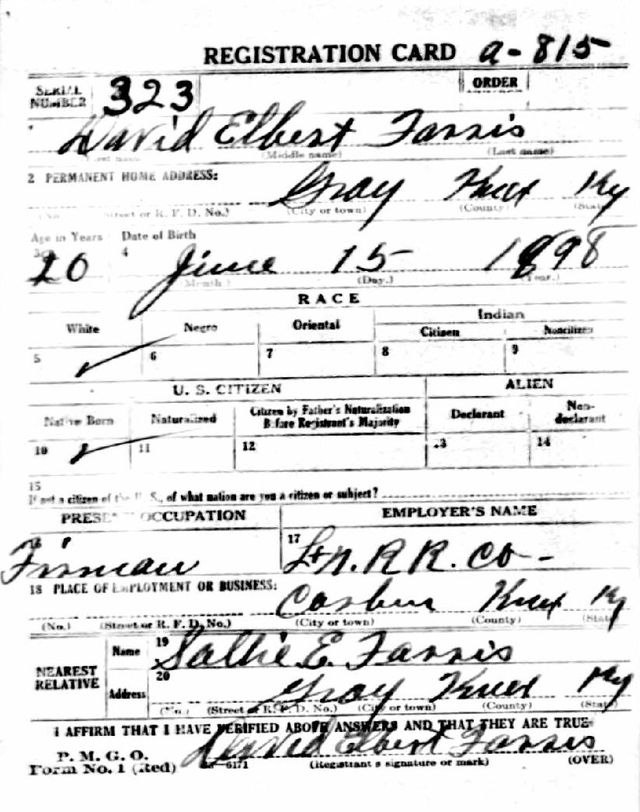 REGISTRATION CARD a-815
SERIAL NUMBER 323 ORDER
David Elbert Farris
(Middle name) (Last name)
2 PERMANENT HOME ADDRESS: Gray Knox Ky
(No.) (Street or R. F. D. No.) (City or town) (County) (State)
Age in Years Date of Birth
20 4 June 15 1898
(Month) (Day.) (Year.)
RACE
White Negro Oriental Indian
Citizen Noncitizen
5 6 7 8 9
U. S. CITIZEN ALIEN
Native Born Naturalized Citizen by Father's Naturalization Before Registrant's Majority Declarant Non-declarant
10 11 12 13 14
15
If not a citizen of the U. S., of what nation are you a citizen or subject?
PRESENT OCCUPATION EMPLOYER'S NAME
Firman 17 L&N. R.R. Co -
18 PLACE OF EMPLOYMENT OR BUSINESS:
Corbin Knox Ky
(No.) (Street or R. F. D. No.) (City or town) (County) (State)
NEAREST RELATIVE
Name 19 Sallie E. Farris
Address 20 Gray Knox Ky
(No.) (Street or R. F. D. No.) (City or town) (County) (State)
I AFFIRM THAT I HAVE VERIFIED ABOVE ANSWERS AND THAT THEY ARE TRUE
P. M. G. O.
Form No. 1 (Red) 6171 David Elbert Farris
(Registrant's signature or mark) (OVER)